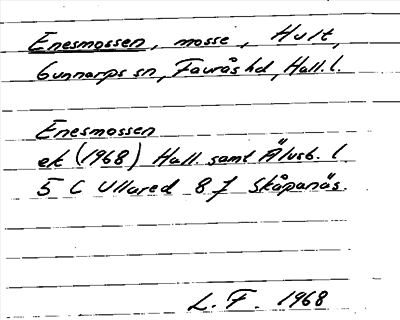 Enesmossen, mosse, Hult,
Gunnarps sn, Faurås hd, Hall. l.
Enesmossen
ek (1968) Hall. samt Älvsb. l
5 C Ullared 8 f Skåpanäs.
L. F. 1968